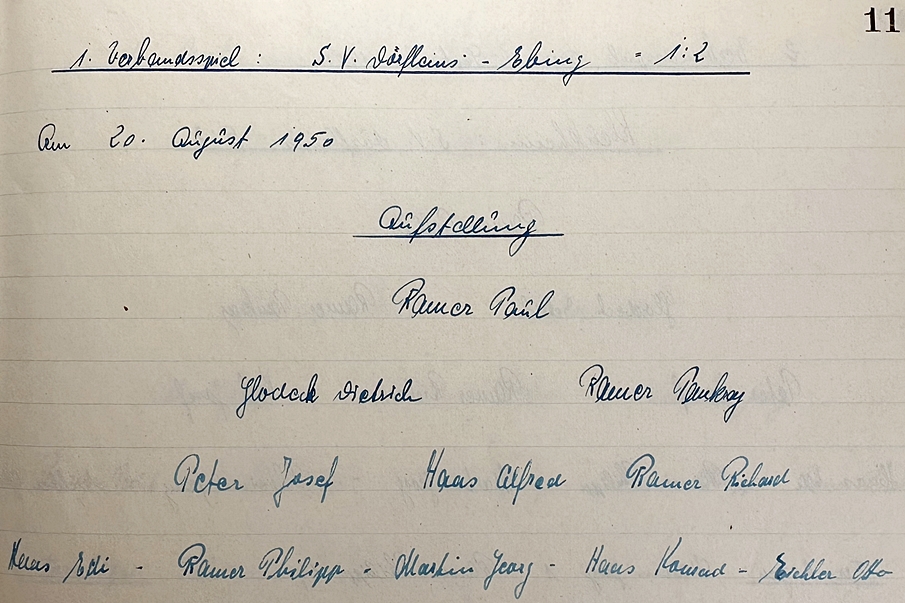 11
1. Verbandsspiel : S. V. Dörfleins - Ebing = 1:2
Am 20. August 1950
Aufstellung
Ramer Paul
Glodeck Dietrich Ramer Pankraz
Peter Josef Haas Alfred Ramer Richard
Haas Edi - Ramer Philipp - Martin Georg - Haas Konrad - Eichler Otto